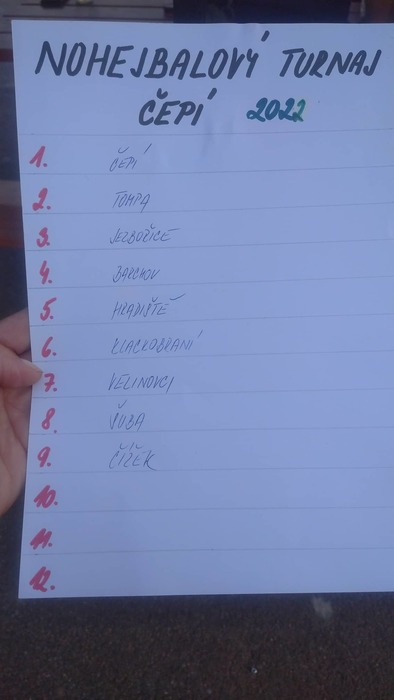 NOHEJBALOVÝ TURNAJ
ČEPÍ 2022
1. ČEPÍ
2. TOMPA
3. JEZBOŘICE
4. BARCHOV
5. HRADIŠTĚ
6. KLACKOBRANÍ
7. VELINOVCI
8. ŠUBA
9. ČÍŽEK
10.
11.
12.